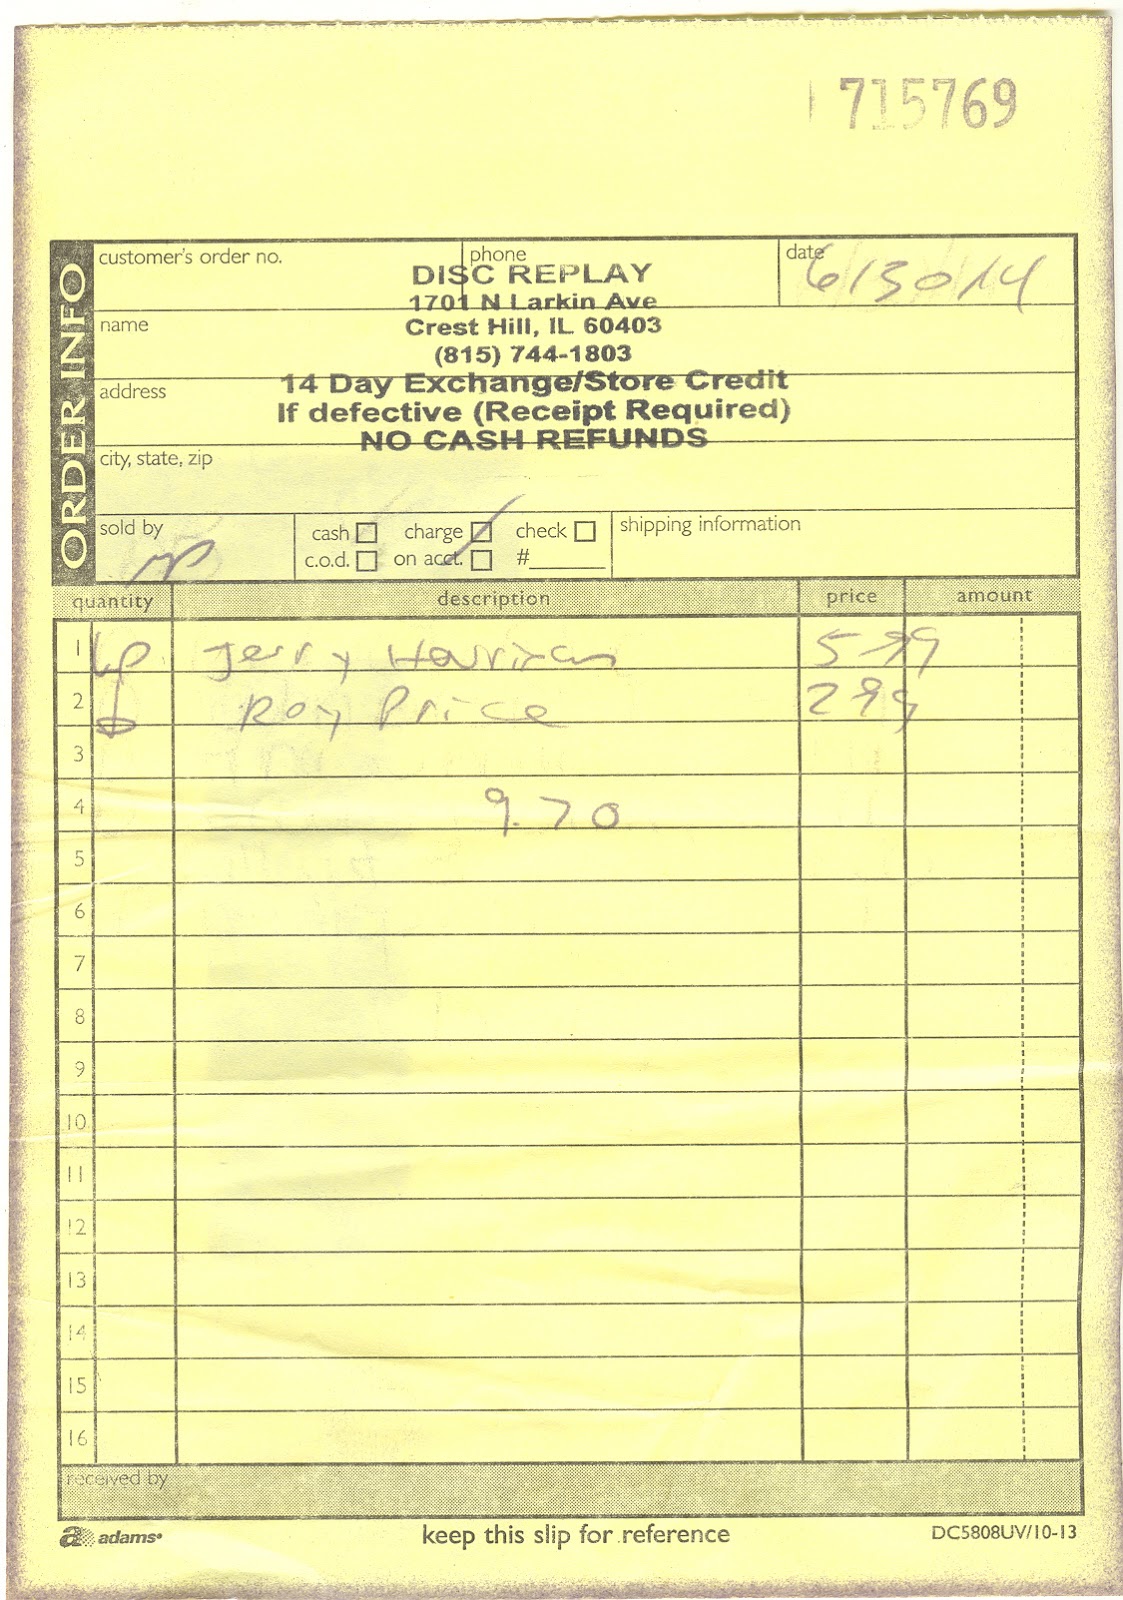 715769
customer's order no. phone date 6/30/14
DISC REPLAY
1701 N Larkin Ave
name Crest Hill, IL 60403
(815) 744-1803
address 14 Day Exchange/Store Credit
If defective (Receipt Required)
NO CASH REFUNDS
city, state, zip
ORDER INFO
sold by cash charge check shipping information
c.o.d. on acct. #
quantity description price amount
1 LP Jerry Harrison 5 99
2 Roy Price 2 99
3
4 9.70
5
6
7
8
9
10
11
12
13
14
15
16
received by
a adams keep this slip for reference DC5808UV/10-13